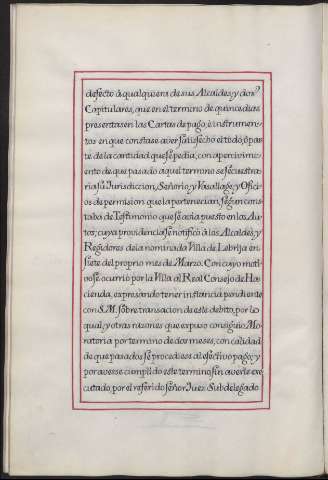 defecto à qualquiera de sus Alcaldes, y dos
Capitulares, que en el termino de quince dias
presentasen las Cartas de pago, è instrumen-
tos en que constase aver satisfecho el todo, ò par-
te de la cantidad que se pedia, con apercivimi-
ento de que pasado aquel termino se secuestra-
ria su Jurisdiccion, Señorio, y Vasallage, y Ofici-
os de permision que la pertenecian segun cons-
taba de Testimonio que se avia puesto en los Au-
tos; cuya providencia se notificò à los Alcaldes, y
Regidores de la nominada Villa de Lebrija en
siete del proprio mes de Marzo. Con cuyo moti-
vo se ocurriò por la Villa al Real Consejo de Ha-
cienda, expresando tener instancia pendiente
con S.M. sobre transacion de este debito, por lo
qual, y otras razones que expuso consiguiò Mo-
ratoria por termino de dos meses, con calidad
de que pasados se procediese al efectivo pago; y
por averse cumplido este termino sin averse exe-
cutado, por el referido Señor Juez Subdelegado